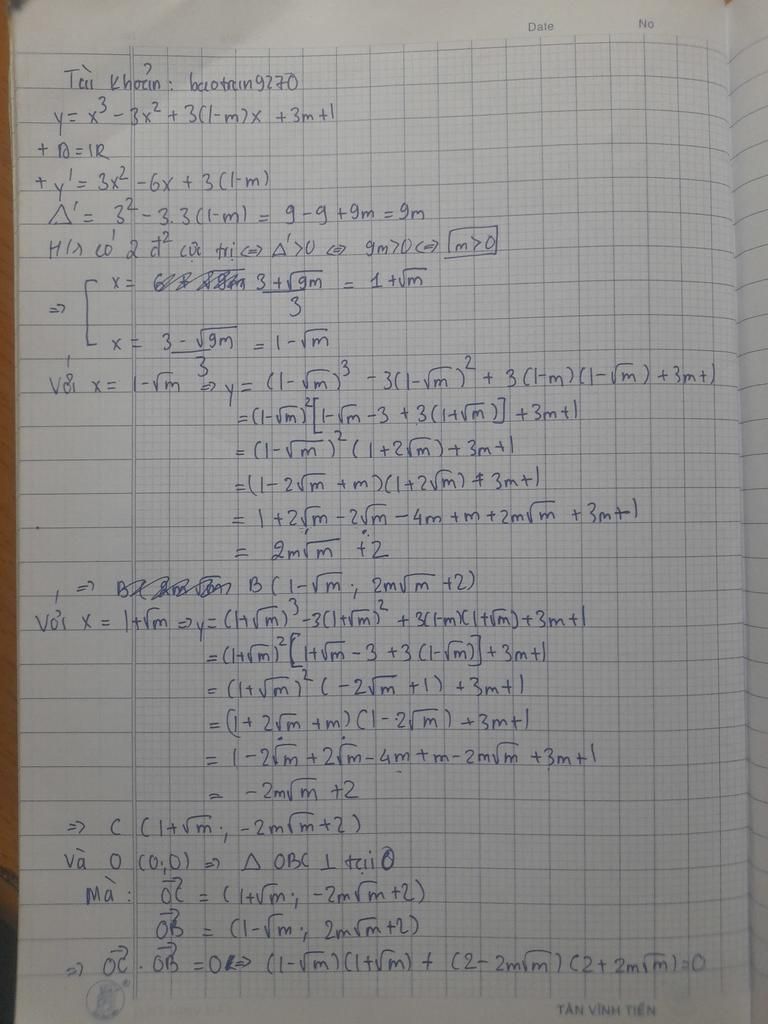 Date No
Tài khoản: baotran9270
y = x³ - 3x² + 3(1-m)x + 3m+1
+ D = IR
+ y' = 3x² - 6x + 3(1-m)
Δ' = 3² - 3.3(1-m) = 9 - 9 + 9m = 9m
H/s có 2 đ² cực trị ⇔ Δ' > 0 ⇔ 9m > 0 ⇔ m > 0
⇒ [ x = (3 + √9m)/3 = 1 + √m
x = (3 - √9m)/3 = 1 - √m
Với x = 1-√m ⇒ y = (1-√m)³ - 3(1-√m)² + 3(1-m)(1-√m) + 3m+1
= (1-√m)²[1-√m - 3 + 3(1+√m)] + 3m+1
= (1-√m)²(1+2√m) + 3m+1
= (1 - 2√m + m)(1+2√m) + 3m+1
= 1 + 2√m - 2√m - 4m + m + 2m√m + 3m+1
= 2m√m + 2
⇒ B(1-√m; 2m√m + 2)
Với x = 1+√m ⇒ y = (1+√m)³ - 3(1+√m)² + 3(1-m)(1+√m) + 3m+1
= (1+√m)²[1+√m - 3 + 3(1-√m)] + 3m+1
= (1+√m)²(-2√m + 1) + 3m+1
= (1 + 2√m + m)(1-2√m) + 3m+1
= 1 - 2√m + 2√m - 4m + m - 2m√m + 3m+1
= -2m√m + 2
⇒ C (1+√m; -2m√m + 2)
Và O (0;0) ⇒ Δ OBC ⊥ tại O
Mà: OC→ = (1+√m; -2m√m+2)
OB→ = (1-√m; 2m√m+2)
⇒ OC→ . OB→ = 0 ⇔ (1-√m)(1+√m) + (2-2m√m)(2+2m√m) = 0
TÂN VĨNH TIẾN